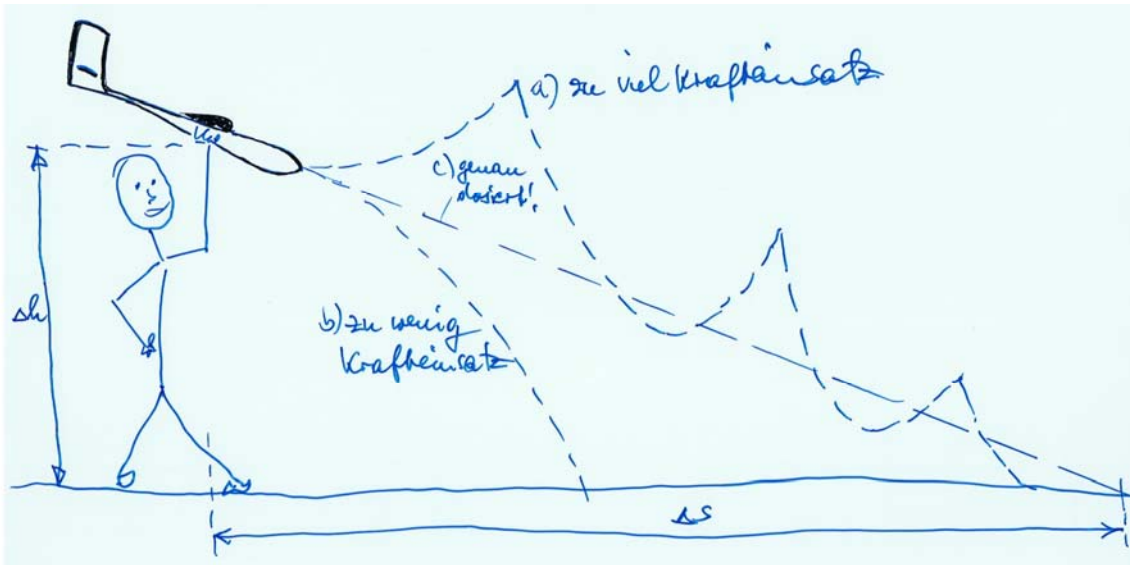 a) zu viel Krafteinsatz
c) genau
dosiert!
Δh
b) zu wenig
Krafteinsatz
Δs